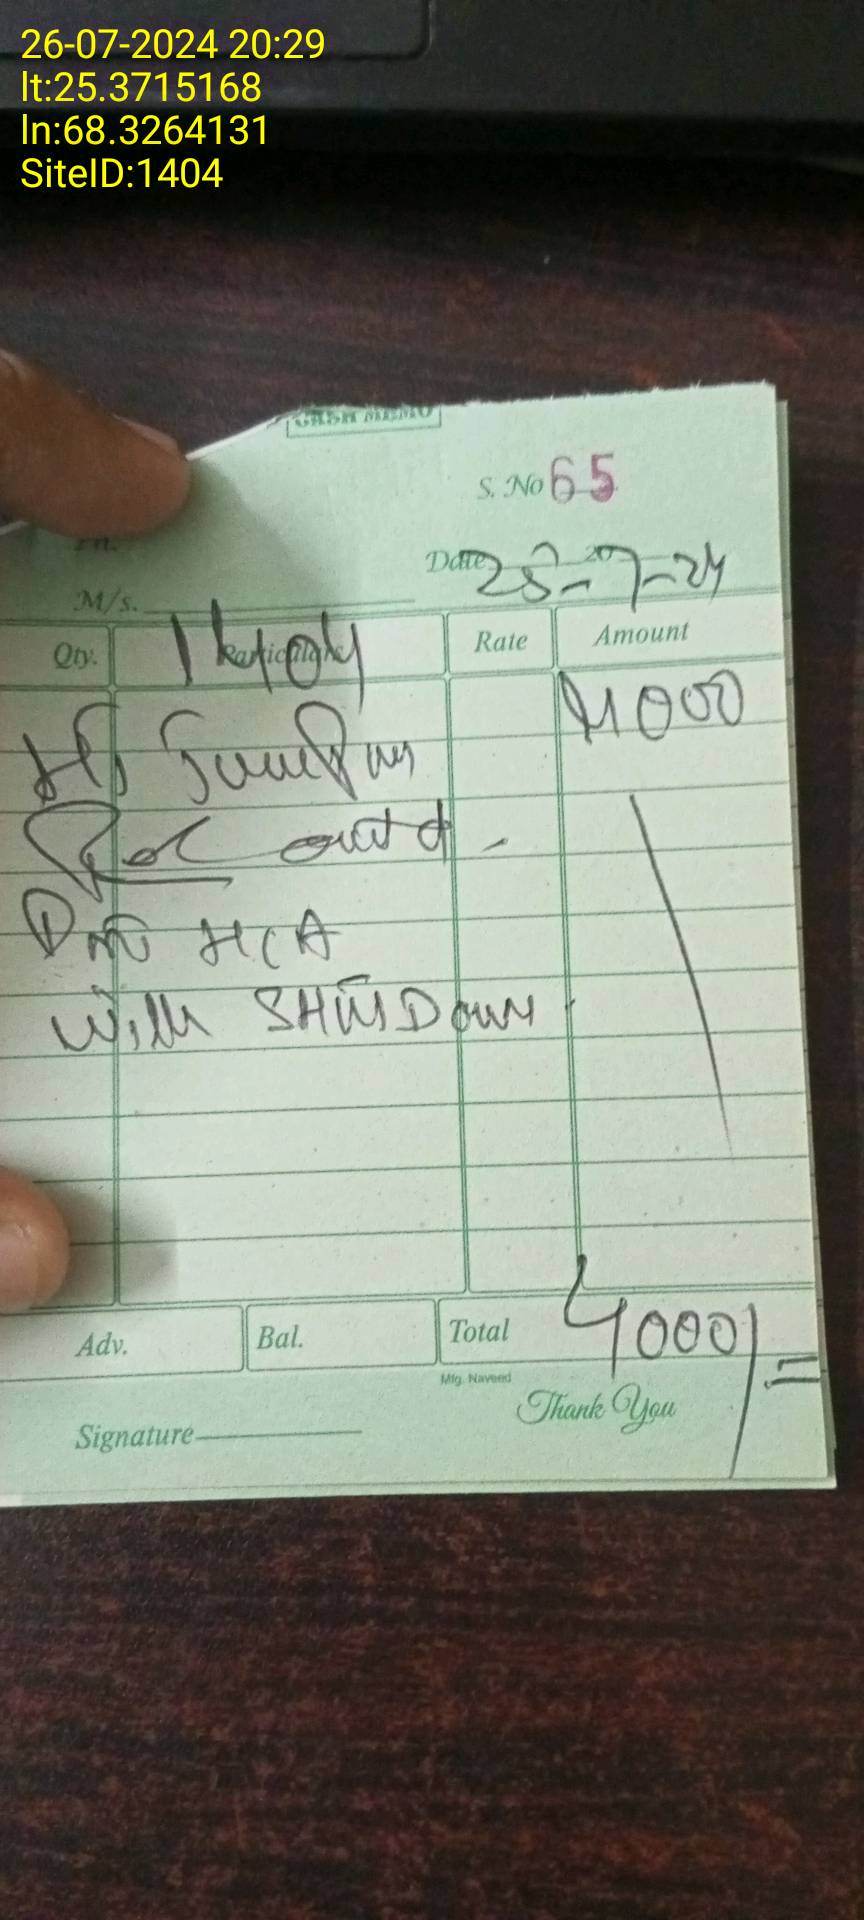 26-07-2024 20:29
lt:25.3715168
ln:68.3264131
SiteID:1404
CASH MEMO
S. No 65
Date 25-7-24
M/s.
1404
Qty. Particulars Rate Amount
4000
out
HCA
With SHutDown
Adv. Bal. Total 4000/=
Mfg. Naveed
Thank You
Signature